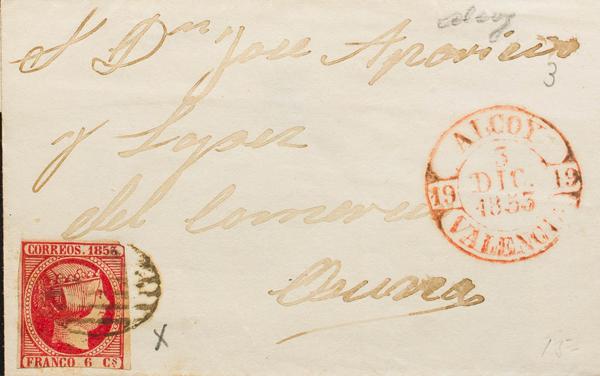 alcoy
S Dn Jose Aparicio
3
y Lopez
del Comercio
ALCOY
3
DIC.
1853
19 19
VALENCIA
CORREOS. 1853
FRANCO 6 Cs
X
15-